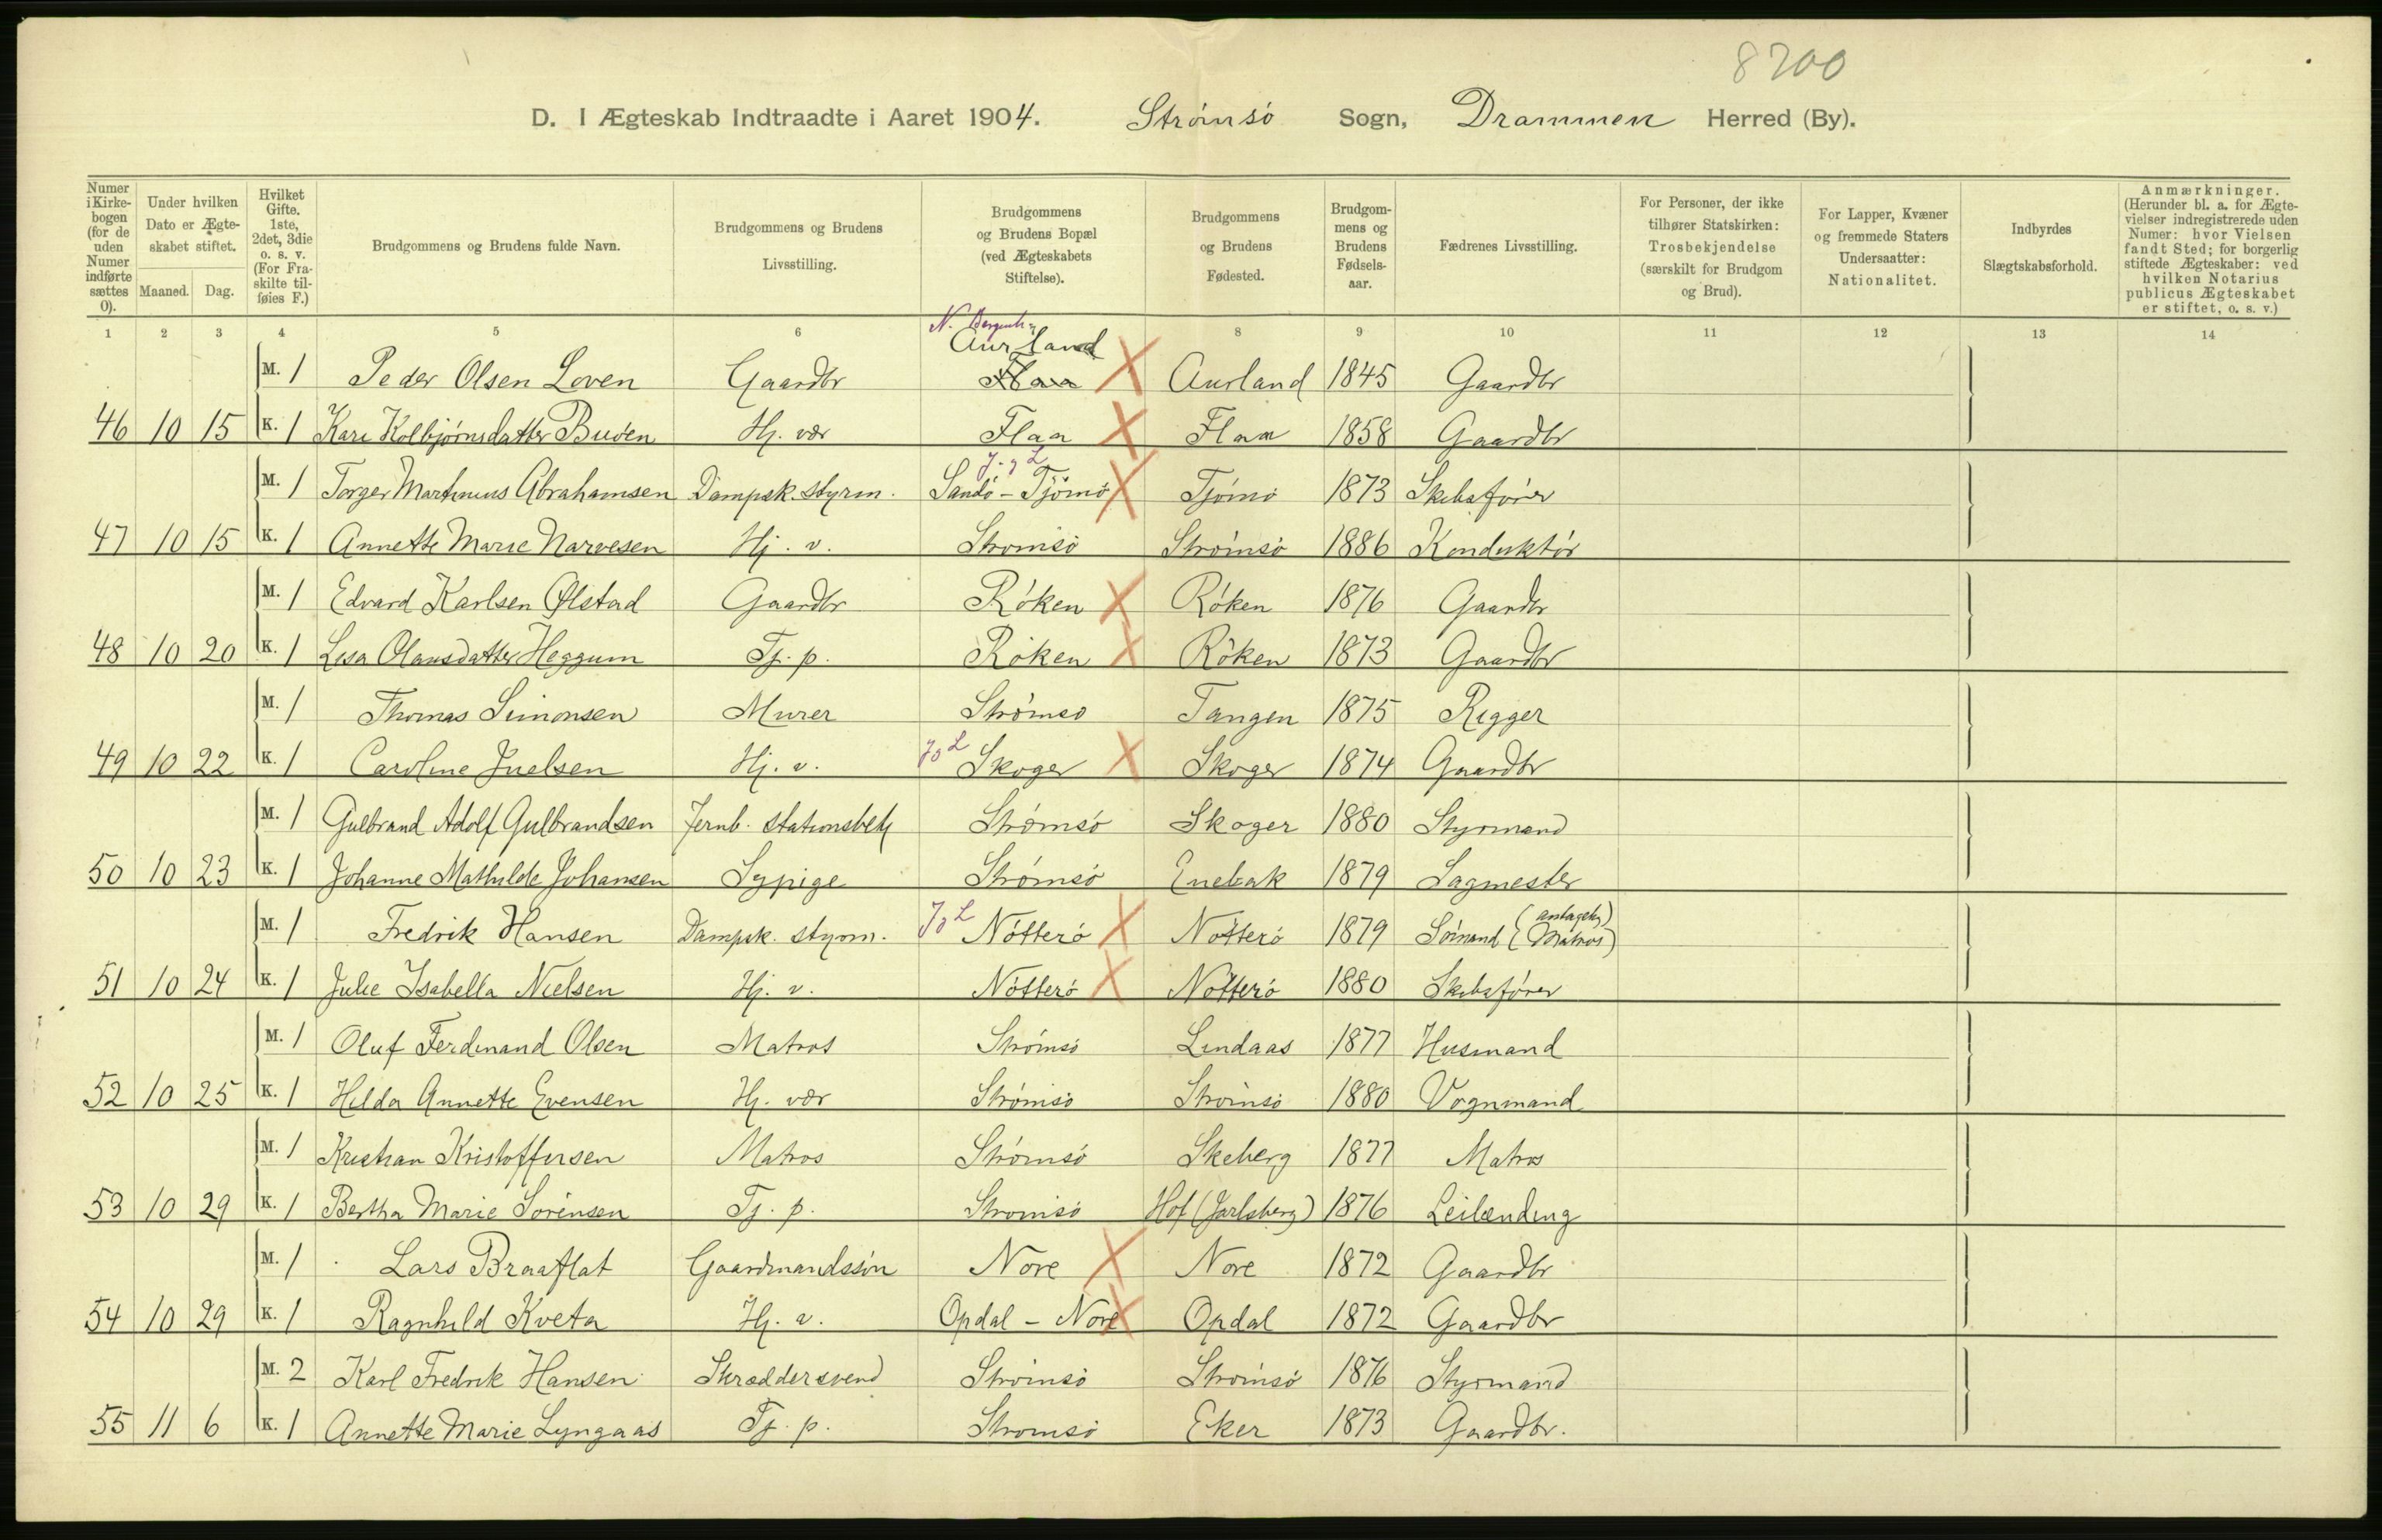 8200
D. I Ægteskab Indtraadte i Aaret 1904. Strømsö Sogn, Drammen Herred (By).
Numer i Kirke- bogen (for de uden Numer indførte sættes 0). | Under hvilken Dato er Ægte- skabet stiftet. Maaned. Dag. | Hvilket Gifte. 1ste, 2det, 3die o. s. v. (For Fra- skilte til- føies F.) | Brudgommens og Brudens fulde Navn. | Brudgommens og Brudens Livsstilling. | Brudgommens og Brudens Bopæl (ved Ægteskabets Stiftelse). | Brudgommens og Brudens Fødested. | Brudgom- mens og Brudens Fødsels- aar. | Fædrenes Livsstilling. | For Personer, der ikke tilhører Statskirken: Trosbekjendelse (særskilt for Brudgom og Brud). | For Lapper, Kvæner og fremmede Staters Undersaatter: Nationalitet. | Indbyrdes Slægtskabsforhold. | Anmærkninger. (Herunder bl. a. for Ægte- vielser indregistrerede uden Numer: hvor Vielsen fandt Sted; for borgerlig stiftede Ægteskaber: ved hvilken Notarius publicus Ægteskabet er stiftet, o. s. v.)
1 2 3 4 5 6 8 9 10 11 12 13 14
N. Bergenh.
Aurland
M. 1 Peder Olsen Loven Gaardbr Flaa Aurland 1845 Gaardbr
46 10 15 K. 1 Kari Kolbjørnsdatter Buöen Hj. vær Flaa Flaa 1858 Gaardbr
J. g L
M. 1 Torger Martinius Abrahamsen Dampsk. styrm. Sandö - Tjömö Tjömö 1873 Skibsfører
47 10 15 K. 1 Annette Marie Narvesen Hj. v. Strømsö Strømsö 1886 Konduktör
M. 1 Edvard Karlsen Ølstad Gaardbr Röken Röken 1876 Gaardbr
48 10 20 K. 1 Lisa Olausdatter Heggum Tj. p. Röken Röken 1873 Gaardbr
M. 1 Thomas Simonsen Murer Strømsö Tangen 1875 Rigger
49 10 22 K. 1 Caroline Juelsen Hj. v. J g L Skoger Skoger 1874 Gaardbr
M. 1 Gulbrand Adolf Gulbrandsen Jernb. stationsbetj Strømsö Skoger 1880 Styrmand
50 10 23 K. 1 Johanne Mathilde Johansen Sypige Strømsö Enebak 1879 Sagmester
M. 1 Fredrik Hansen Dampsk. styrm. J g L Nötterö Nötterö 1879 Sömand (antagelig Matros)
51 10 24 K. 1 Julie Isabella Nielsen Hj. v. Nötterö Nötterö 1880 Skibsfører
M. 1 Oluf Ferdinand Olsen Matros Strømsö Lindaas 1877 Husmand
52 10 25 K. 1 Hilda Annette Evensen Hj. vær Strømsö Strømsö 1880 Vognmand
M. 1 Kristian Kristoffersen Matros Strømsö Skeberg 1877 Matros
53 10 29 K. 1 Bertha Marie Sörensen Tj. p. Strømsö Hof (Jarlsberg) 1876 Leilænding
M. 1 Lars Braaflat Gaardmandssön Nore Nore 1872 Gaardbr
54 10 29 K. 1 Ragnhild Kveta Hj. v. Opdal - Nore Opdal 1872 Gaardbr
M. 2 Karl Fredrik Hansen Skræddersvend Strømsö Strømsö 1876 Styrmand
55 11 6 K. 1 Annette Marie Lyngaas Tj. p. Strømsö Eker 1873 Gaardbr.